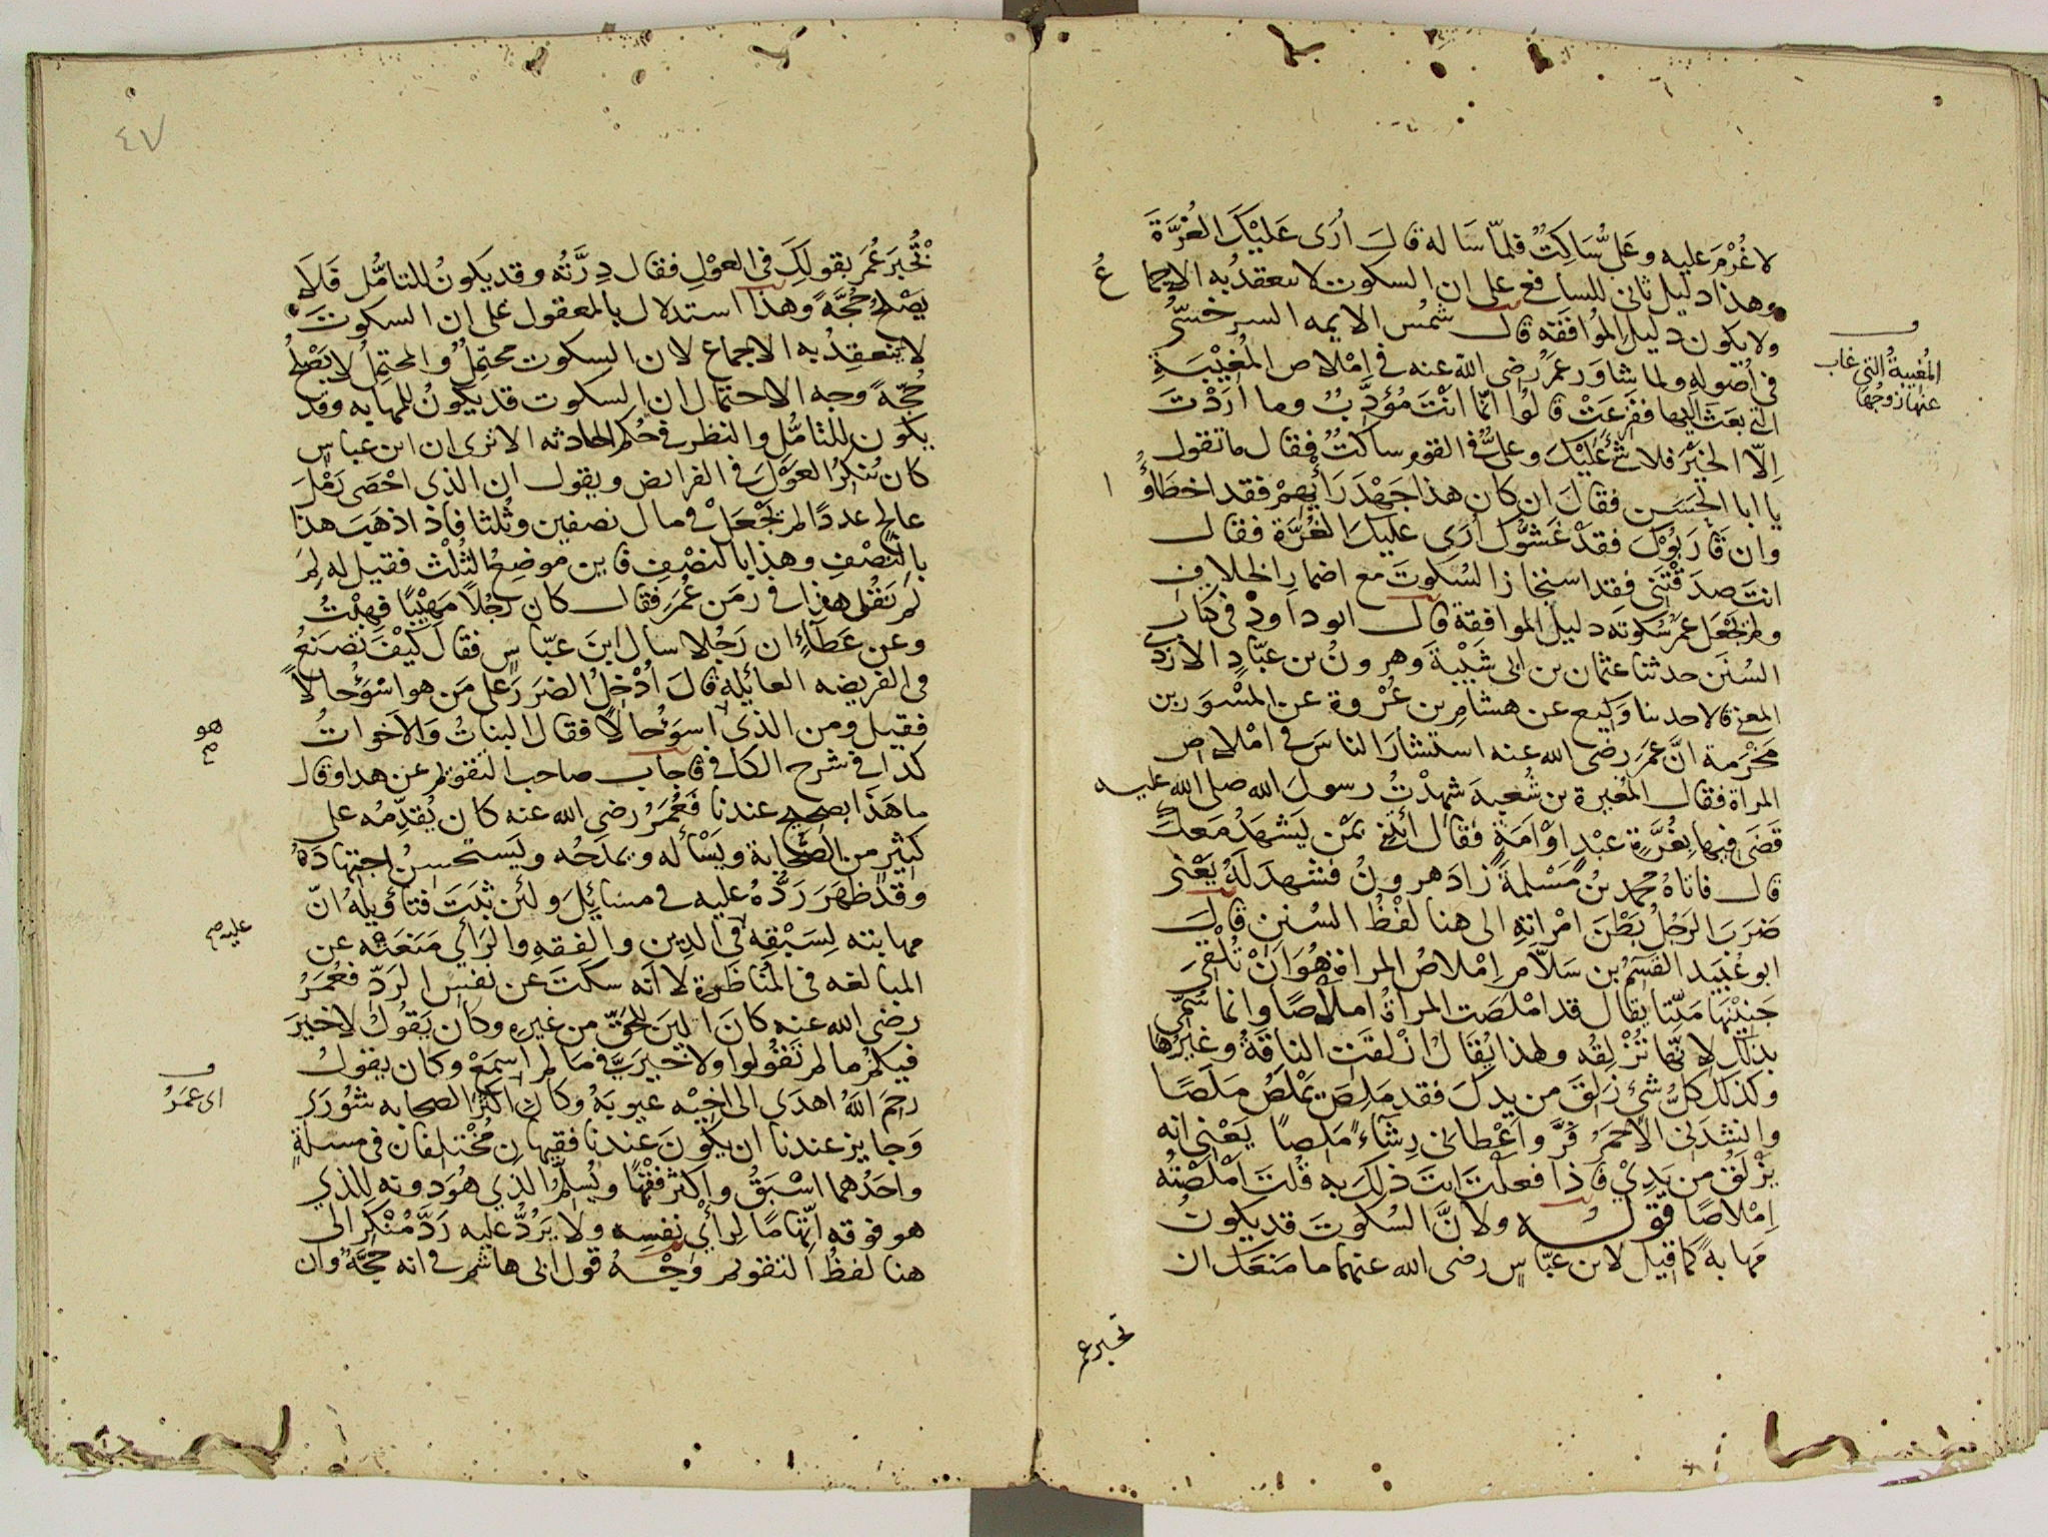 لا غُرْمَ عليه وعَلىٌّ سَاكِتٌ فلمّا سَاله قالَ ارَى عَلَيْكَ الغُرَّةَ
وهذا دليل ثانى للسافعى على ان السكوت لا ينعقدُ به الاجماعُ
ولا يكون دليل المُوافَقَه قال شمْس الايمه السرخسىُّ
فى اُصُولِهِ ولما شاوَر عمَرُ رضى الله عنه فى اِمْلاصِ المُغِيْبَةِ
التى بعَثَ اليها ففزعَتْ قالُوا انّما انْتَ مُؤَدِّبٌ وما ارَدْتَ
اِلّا الخيْرَ فلا شئَ عَلَيْكَ وعلىٌّ فى القوم ساكتٌ فقال ما تقول
يا ابا الحَسَن فقالَ ان كان هذا جَهْدَ رَأيِهِمْ فقد اخطَاؤُا
وان قارَبُوْكَ فقدْ غَشُّوْكَ ارَى عليكَ الغُرَّةَ فقال
انتَ صدَقْتَنِى فقد استخارَ السُكوتَ مع اضمار الخلاف
ولم يَجْعَل عمَرُ سُكوتَه دليل الموافقة قال ابو داودْ فى كتاب
السُنَن حدثنا عثمان بن ابى شَيْبَةَ وهرونُ بن عبّادٍ الازدى
المعنى قالا حدثنا وَكِيع عن هشامِ بن عُرْوة عن المسْوَر بن
مَخْرَمة انَّ عمَرَ رضى الله عنه استشارَ الناسَ فى امْلاص
المراة فقال المُغيرة بن شُعبةَ شهِدْتُ رسولَ الله صلى الله عليه
قضَى فيها بغُرَّةٍ عبْدٍ اوْ امَةٍ فقال ائتنى بمَنْ يَشهَدُ معَكَ
قال فاتاهُ محمد بنُ مَسْلمةَ زادَ هرونُ فشهدَ لَهُ يَعْنى
ضرَبَ الرَجُلُ بَطْنَ امْراتِهِ الى هنا لفْظُ السُنن قالَ
ابو عُبَيد القسمُ بن سَلّام اِمْلاصُ المراة هُوَ اَنْ تُلْقِىَ
جَنِيْنَهَا مَيّتا يقال قد امْلصَت المراةُ املاصًا وانما سُمّى
بذلك لانّها تُزْلِقُه ولهذا يُقَالُ ازْلقَت الناقَةُ وغيرُها
وكذلك كلُّ شئٍ زَلِقَ من يدِكَ فقد مَلِصَ يَمْلَصُ مَلَصًا
وانشدنى الاحمَرُ فَرَّ واَعْطانى رِشَاءً مَلِصاً يَعْنى انه
يَزْلَقُ من يَدِىْ فاذا فعلْتَ انتَ ذلِكَ به قُلتَ امْلَصْتُه
اِمْلاصًا قوله ولانَّ السُكوتَ قد يكونُ
مَهابةً كما قيل لابن عبّاسٍ رضى الله عنهما ما منَعَكَ ان
المُغِيبةُ التى غاب
عنها زوجُها
تخبر عمر
٤٧
تُخْبِرَ عُمَرَ بقولِكَ فى العوْلِ فقال دِرَّتُه وقد يكونُ للتامُّل فَلَا
يَصْلُحُ حُجَّةً وهذا استدلال بالمعقول على ان السكوتَ
لا ينعقِدُ به الاجماع لان السكوت محتمِلٌ والمحتمِلُ لا يَصْلُحُ
حُجّةً وجه الاحتمال ان السكوت قد يكونُ للمهابه وقد
يكون للتامُّل والنظر فى حُكم الحادثه الا ترى ان ابن عباس
كان يُنكِرُ العَوْلَ فى الفرائض ويقول ان الذى احْصَى رَمْلَ
عالجٍ عددًا لم يَجْعَلْ فى مال نصفين وثُلثا فاذا ذهَبَ هذا
بالنِّصْفِ وهذا بالنصْفِ فاين موضِعُ الثُلُثِ فقيل له لِمَ
لم تقُل هذا فى زمَن عُمَر فقال كان رَجُلًا مَهِيْبًا فهِبْتُ
وعن عَطَاءٍ ان رَجُلا سال ابنَ عبّاسٍ فقال كيْفَ تصْنَعُ
فى الفريضه العائله قالَ اُدْخِلُ الضرَرَ على مَن هو اسْوَءُ حالًا
فقيل ومن الذى اسوَءُ حالًا فقال البناتُ والاَخواتُ
كذا فى شرح الكافى فاجاب صاحب التقويم عن هذا وقال
ما هَذا بصحيحٍ عندنا فَعُمَرُ رضى الله عنه كان يُقدِّمُه على
كثيرٍ من الصَّحابة ويَسْأله ويمدَحُه ويَستحسنُ اجتهادَهُ
وقد ظهَرَ رَدُّهُ عليه فى مسَائِلَ ولئن ثبَتَ فتأويلهُ انّ
مهابته لِسَبْقِه فى الدين والفقهِ والرَأى مَنعَتْه عن
المبالغه فى المُناظرة لا انه سكَتَ عن نفسِ الرَدّ فعُمَرُ
رضى الله عنه كانَ الْيَنَ للحقّ من غيرِهِ وكان يَقُوْلُ لا خيْرَ
فيكمْ ما لم تَقُوْلوا ولا خيرَ فىَّ ما لم اسمَعْ وكان يقولُ
رحِمَ اللهُ اهدَى الى اخِيْه عيوبَهُ وكان اكثَرَ الصحابه شُوْرَى
وَجايز عندنا ان يكُونَ عندنا فقيهان مُخْتلفان فى مسلةٍ
واحَدُهما اسْبَقُ واكثرُ فقهًا ويُسلِّمُ الذى هُوَ دونه للذى
هو فوقه اتِّهامًا لِرأىِ نفسِه ولا يَرُدُّ عليه رَدَّ مُنْكرٍ الى
هنا لفظُ التقويم وَجْهُ قول ابى هاشم فى انه حجَّةٌ وان
هو
عليه
اى عمَرُ